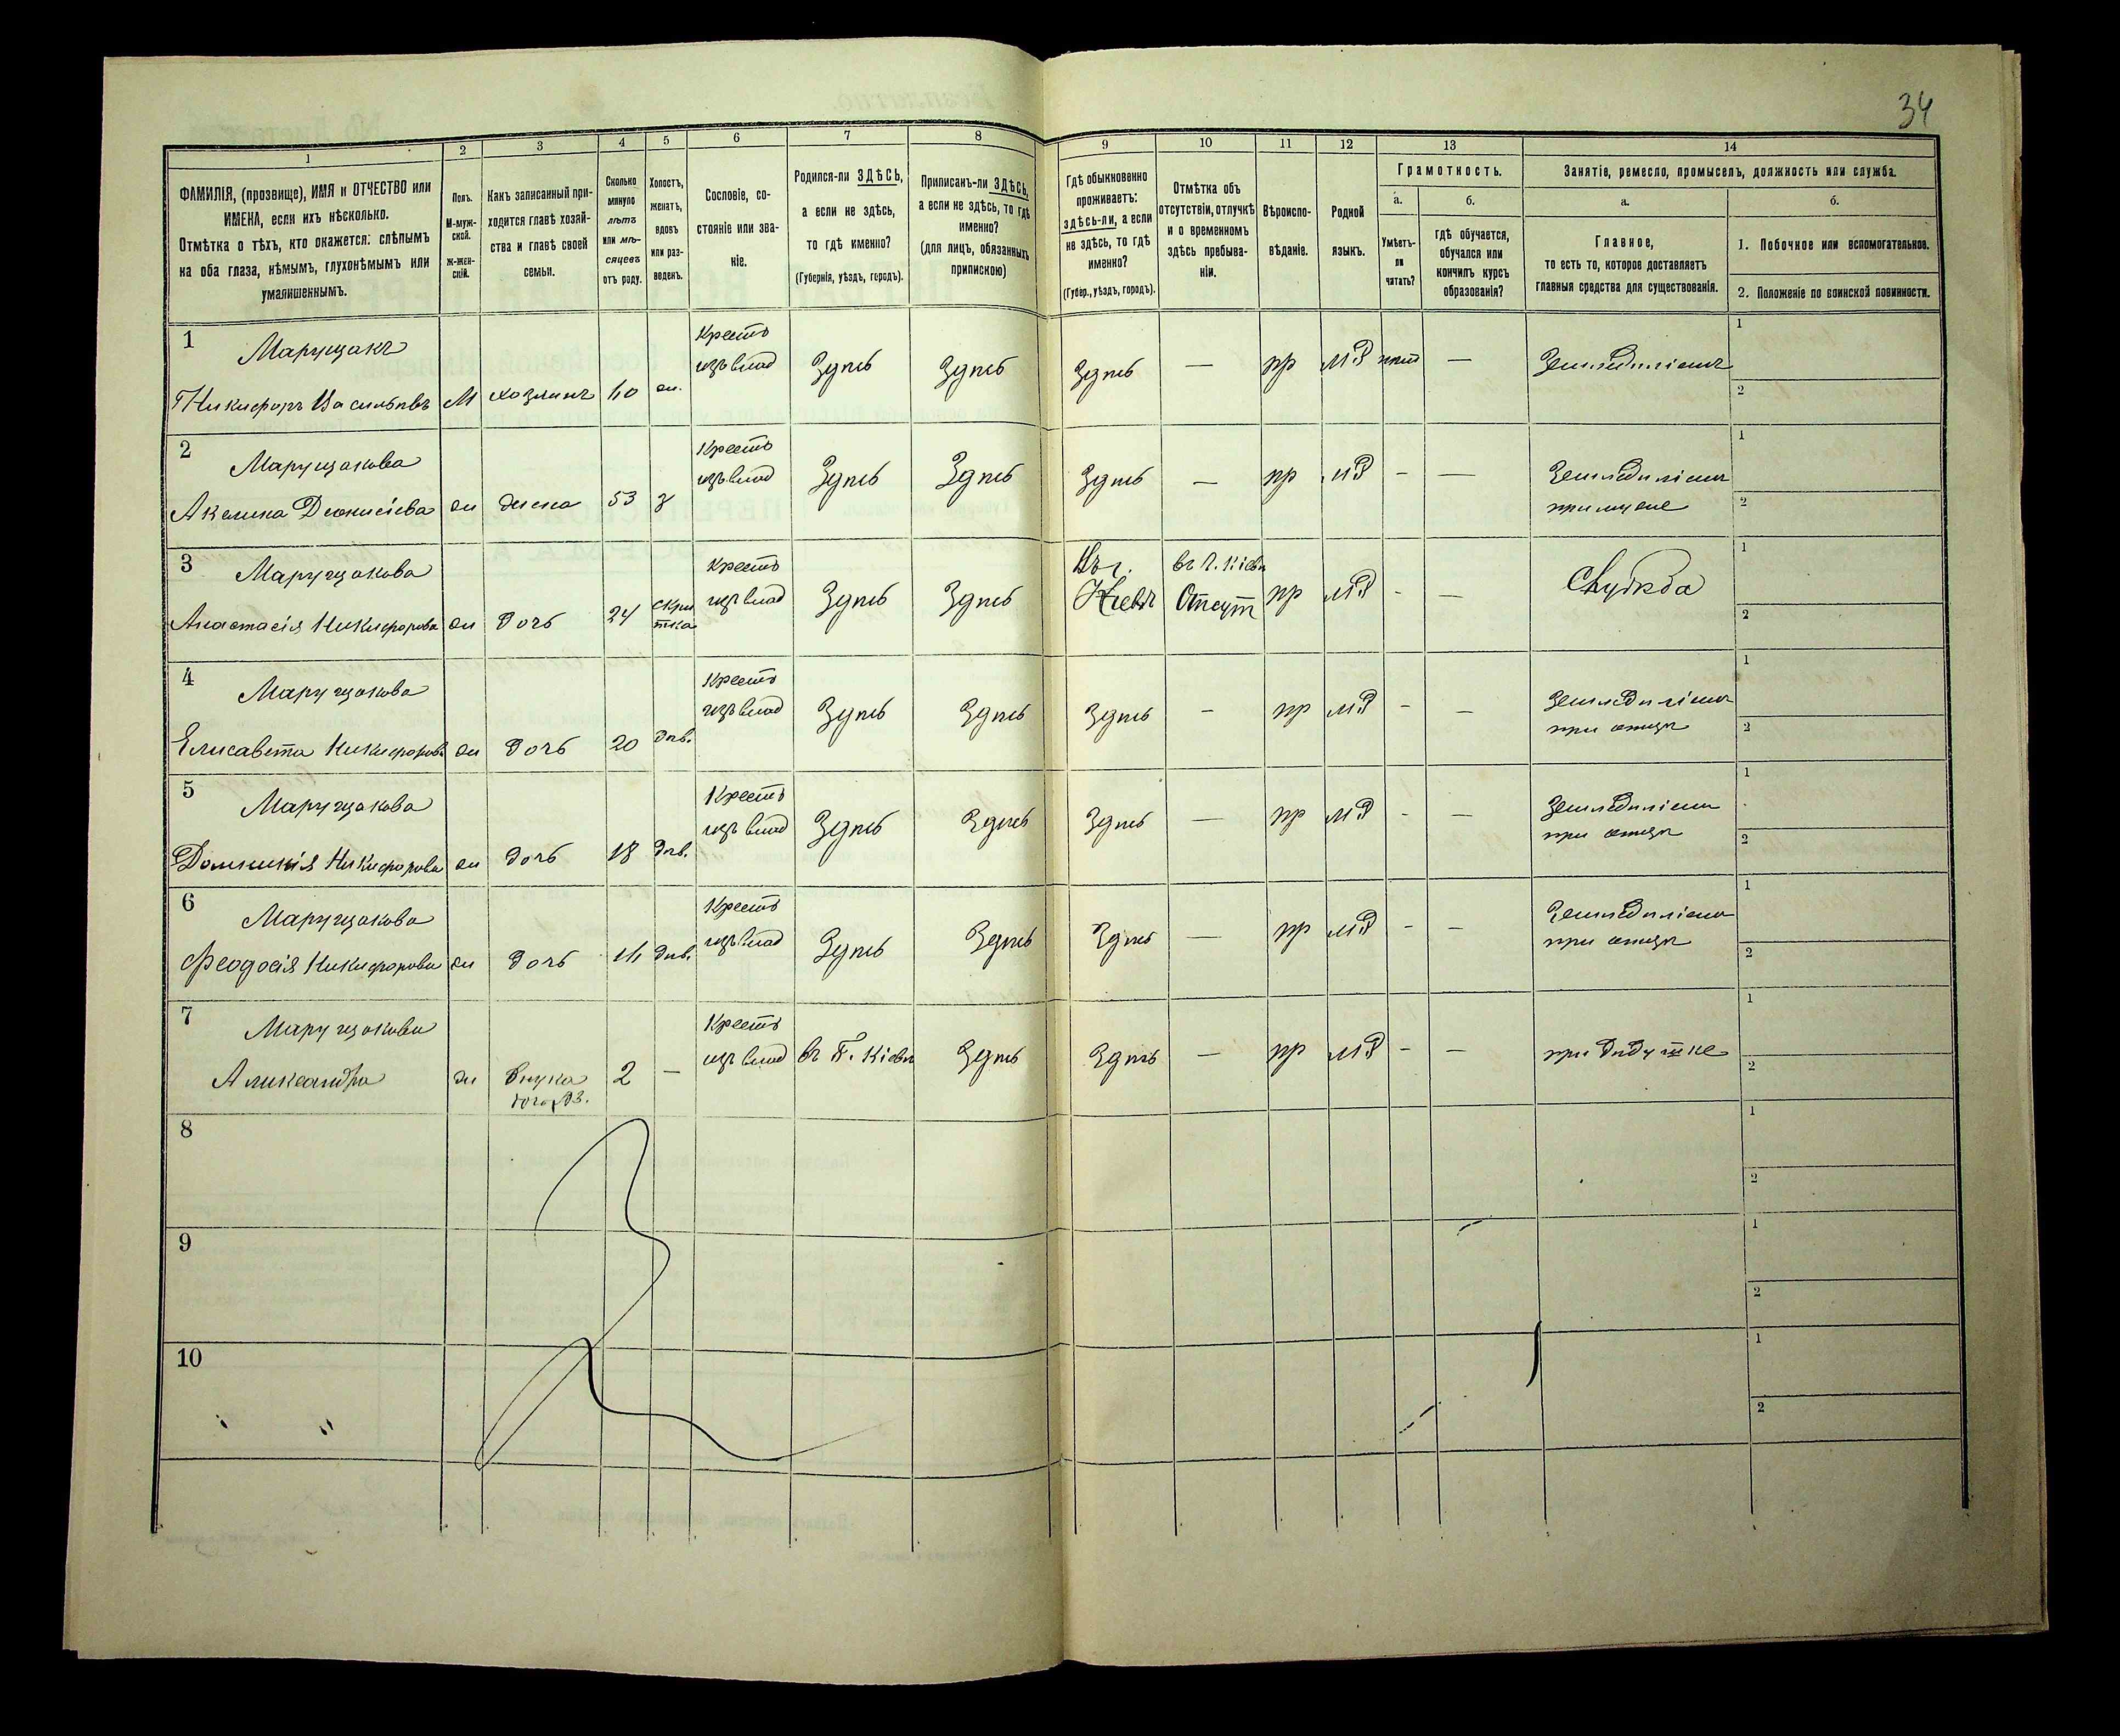 34
1 2 3 4 5 6 7 8 9 10 11 12 13 14
ФАМИЛІЯ, (прозвище), ИМЯ и ОТЧЕСТВО или
ИМЕНА, если ихъ нѣсколько.
Отмѣтка о тѣхъ, кто окажется: слѣпымъ
на оба глаза, нѣмымъ, глухонѣмымъ или
умалишеннымъ.
Полъ.
М-муж-
ской.
Ж-жен-
скій.
Какъ записанный при-
ходится главѣ хозяй-
ства и главѣ своей
семьи.
Сколько
минуло
лѣтъ
или мѣ-
сяцевъ
отъ роду.
Холостъ,
женатъ,
вдовъ
или раз-
веденъ.
Сословіе, со-
стояніе или зва-
ніе.
Родился-ли ЗДѢСЬ,
а если не здѣсь,
то гдѣ именно?
(Губернія, уѣздъ, городъ).
Приписанъ-ли ЗДѢСЬ,
а если не здѣсь, то гдѣ
именно?
(для лицъ, обязанныхъ
припискою)
Гдѣ обыкновенно
проживаетъ:
здѣсь-ли, а если
не здѣсь, то гдѣ
именно?
(Губер., уѣздъ, городъ).
Отмѣтка объ
отсутствіи, отлучкѣ
и о временномъ
здѣсь пребыва-
ніи.
Вѣроиспо-
вѣданіе.
Родной
языкъ.
Грамотность.
а.
Умѣетъ-
ли
читать?
б.
гдѣ обучается,
обучался или
кончилъ курсъ
образованія?
Занятіе, ремесло, промыселъ, должность или служба.
а.
Главное,
то есть то, которое доставляетъ
главныя средства для существованія.
б.
1. Побочное или вспомогательное.
2. Положеніе по воинской повинности.
1 Марущакъ Крестъ 1
изъ влад Здѣсь Здѣсь Здѣсь — пр МР — Земледѣліемъ
Никифоръ Васильевъ М хозяинъ ж. 2
2 Марущакова Крестъ 1
изъ влад Здѣсь Здѣсь Здѣсь — пр МР - — Земледѣліемъ
Акелина Дионисіева ж жена 53 з при муже 2
3 Марущакова Крестъ Въ г. въ г. Кіевѣ 1
изъ влад Здѣсь Здѣсь Кіевѣ Отсут пр МР - — Служба
Анастасія Никифорова ж дочь 24 скры
тка 2
4 Марущакова Крестъ 1
изъ влад Здѣсь Здѣсь Здѣсь - пр МР - — Земледѣліемъ
Елисавета Никифорова ж дочь 20 дѣв. при отцѣ 2
5 Марущакова Крестъ 1
изъ влад Здѣсь Здѣсь Здѣсь — пр МР - — Земледѣліемъ
Домникія Никифорова ж дочь 18 дѣв. при отцѣ 2
6 Марущакова Крестъ 1
изъ влад Здѣсь Здѣсь Здѣсь — пр МР - - Земледѣліемъ
Феодосія Никифорова ж дочь дѣв. при отцѣ 2
7 Марущакова Крестъ 1
изъ влад въ г. Кіевѣ Здѣсь Здѣсь — пр МР - — при дѣдушке
Александра ж внука 2 — 2
8 1
2
9 1
2
10 1
2